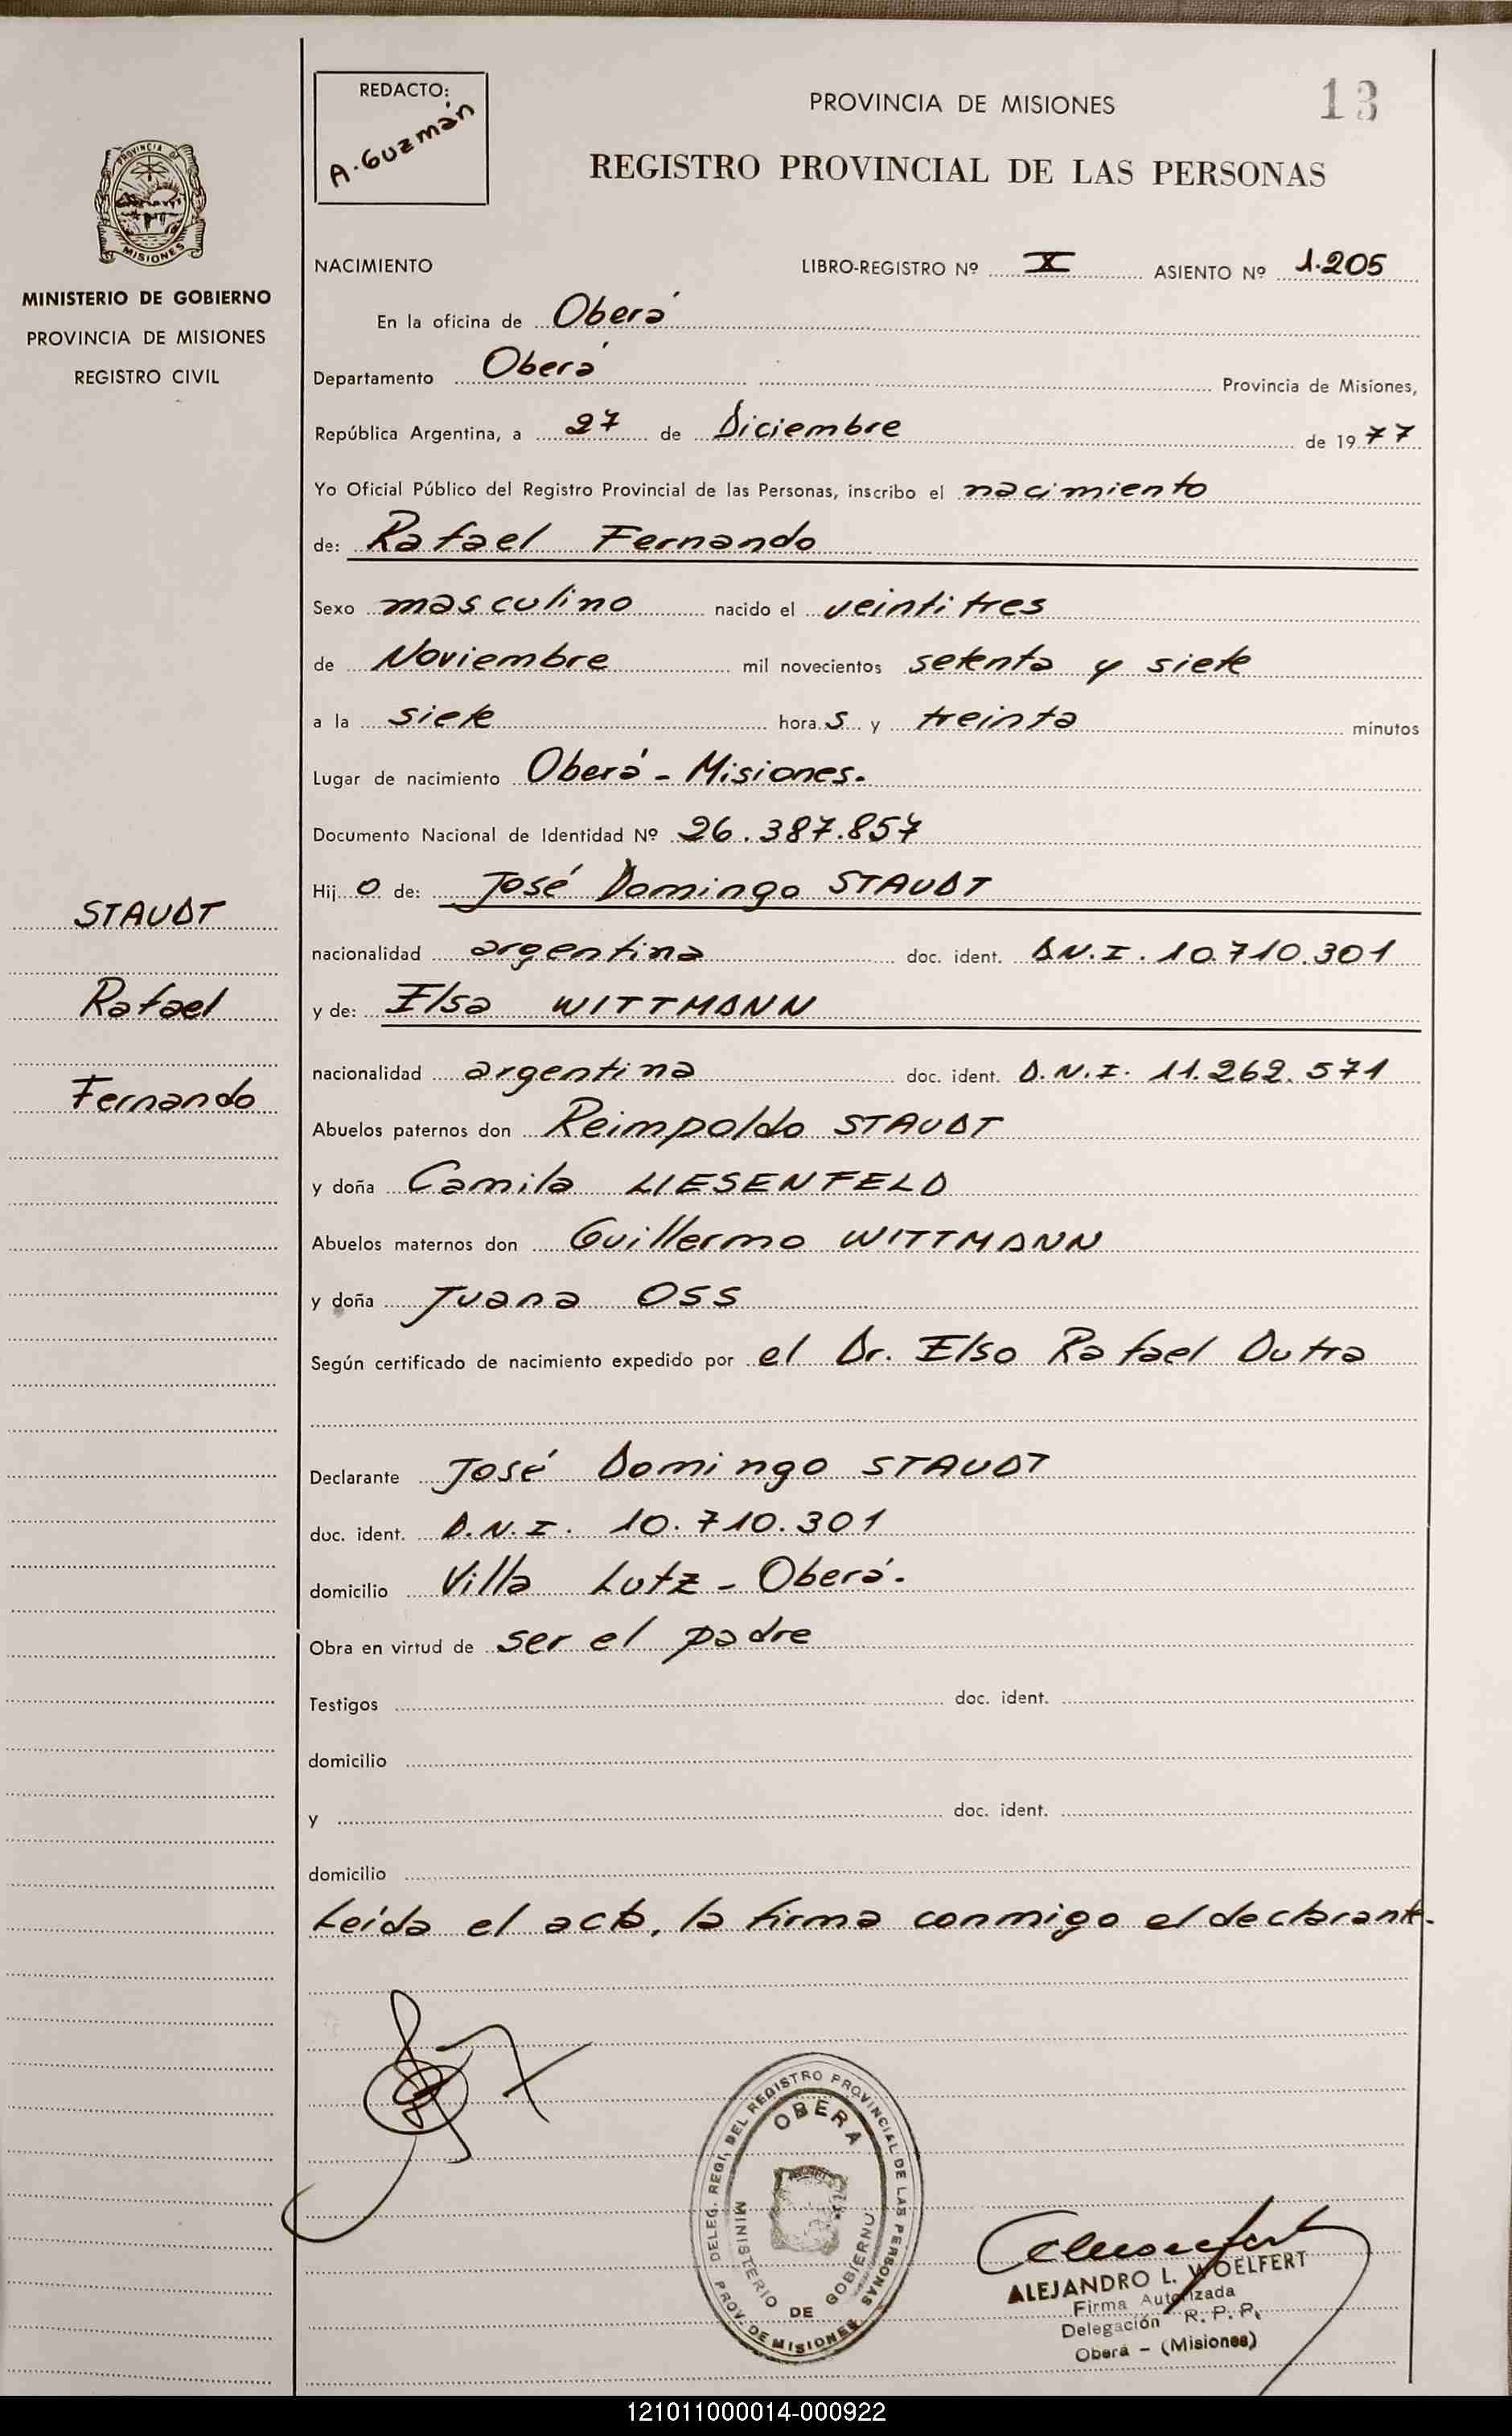 REDACTO:
A. Guzmán
PROVINCIA DE MISIONES
13
REGISTRO PROVINCIAL DE LAS PERSONAS
PROVINCIA DE
MISIONES
MINISTERIO DE GOBIERNO
PROVINCIA DE MISIONES
REGISTRO CIVIL
NACIMIENTO LIBRO-REGISTRO Nº X ASIENTO Nº 1.205
En la oficina de Oberá
Departamento Oberá Provincia de Misiones,
República Argentina, a 27 de Diciembre de 1977
Yo Oficial Público del Registro Provincial de las Personas, inscribo el nacimiento
de: Rafael Fernando
Sexo masculino nacido el veintitres
de Noviembre mil novecientos setenta y siete
a la siete hora s y treinta minutos
Lugar de nacimiento Oberá - Misiones.
Documento Nacional de Identidad Nº 26.387.857
Hij o de: José Domingo STAUDT
nacionalidad argentina doc. ident. D.N.I. 10.710.301
y de: Elsa WITTMANN
nacionalidad argentina doc. ident. D.N.I. 11.262.571
Abuelos paternos don Reimpoldo STAUDT
y doña Camila LIESENFELD
Abuelos maternos don Guillermo WITTMANN
y doña Juana OSS
Según certificado de nacimiento expedido por el Dr. Elso Rafael Dutra
Declarante José Domingo STAUDT
doc. ident. D.N.I. 10.710.301
domicilio Villa Lutz - Oberá.
Obra en virtud de ser el padre
Testigos doc. ident.
domicilio
y doc. ident.
domicilio
Leída el acta, la firma conmigo el declarante.
STAUDT
Rafael
Fernando
DELEG. REGI. DEL REGISTRO PROVINCIAL DE LAS PERSONAS
PROV. DE MISIONES
OBERA
MINISTERIO DE GOBIERNO
ALEJANDRO L. WOELFERT
Firma Autorizada
Delegación R. P. P.
Oberá - (Misiones)
121011000014-000922